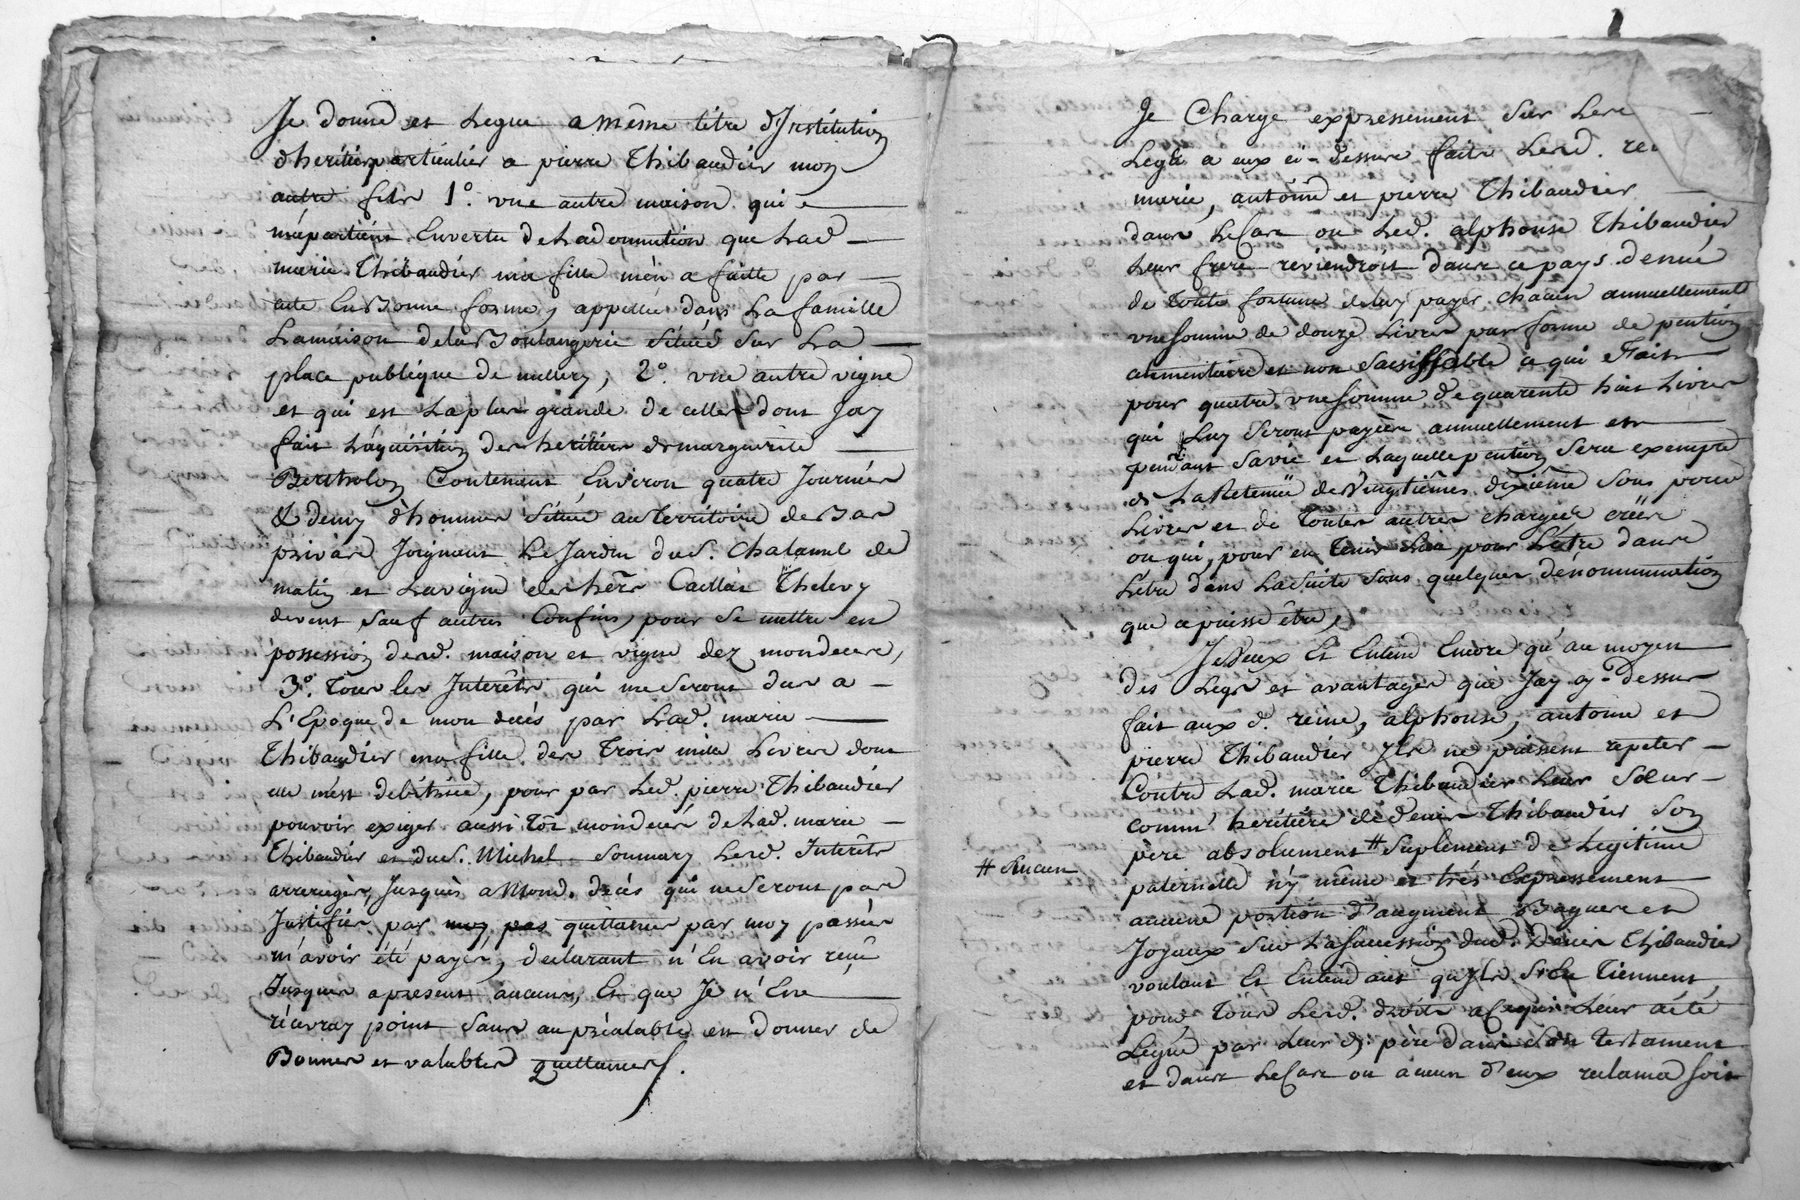 Je donne et Legue a même titre d'Institution
d'heritier particulier a pierre Thibaudier mon
autre fils 1º. vne autre maison qui
m'apartient En vertu de La donnation que Lad
marie Thibaudier ma fille m'en a faitte par
acte En Bonne forme, appellée dans La famille
La maison de la Boulangerie située sur La
place publique de millery, 2º. vne autre vigne
et qui est la plus grande de celles dont Jay
fait L'aquisition des heritiers de marguerite
Bertholon Contenant Environ quatre Journées
& demy d'hommes située au Territoire de Bas
privas Joignant Le Jardin du S. Chalamel de
matin et La vigne des hers Caillat Thelevy
devent sauf autres Confins, pour se mettre en
possession desd. maison et vigne dez mon deces,
3º. Tous les Interêts qui me seront dus a
L'Epoque de mon decés par Lad. marie
Thibaudier ma fille des Trois mille Livres dont
elle m'est debitrice, pour par Led. pierre Thibaudier
pouvoir exiger aussi Tôt mon decés de Lad. marie
Thibaudier et du S. Michel Sonnary Lesd. Interêts
arrerages, Jusques a Mond. decés qui ne seront pas
Justifiés par moy, pas quittances par moy passées
m'avoir été payés, declarant n'En avoir reçu
Jusques apresent aucuns, Et que Je n'En
recevray point sans au préalable en donner de
Bonnes et valables quittances.
Je Charge expressement sur Les
Legs a eux ci-dessus faits Lesd.
marie, antoine et pierre Thibaudier
dans Le Cas ou Led. alphonse Thibaudier
Leur frere reviendroit dans ce pays denué
de Toute fortune de luy payer chacun annuellement
vne somme de douze Livres par forme de pention
alimentaire et non saisissable ce qui Fait
pour quatre vne somme de quarente huit Livres
qui Luy seront payées annuellement et
pendant sa vie et Laquelle pention sera exempte
de La Retenüe des vingtiêmes dixiême sous pour
Livres et de Toutes autres charges créés
ou qui, pour en Tenir Lieu, pour L'être dans
L'etre dans La suite sous quelques denommination
que ce puisse être,
Je Veux Et Entend Encore qu'au moyen
des Legs et avantages que Jay cy-dessus
fait aux d. reine, alphonse, antoine et
pierre Thibaudier Ils ne puissent repeter
Contre Lad. marie Thibaudier Leur Sœur
comm' heritiere de Denis Thibaudier son
père absolument # suplement de Legitime
# Aucun
paternelle n'y meme et trés Expressement
aucune portion d'augment Bagues et
Joyaux sur La succession dud. Denis Thibaudier
voulant Et Entendant qu'Ils s'En Tiennent
pour Tous Lesd. droits a ce qui Leur a été
Legué par Leur d. père dans son Testament
et dans Le Cas ou aucun d'eux reclama soit